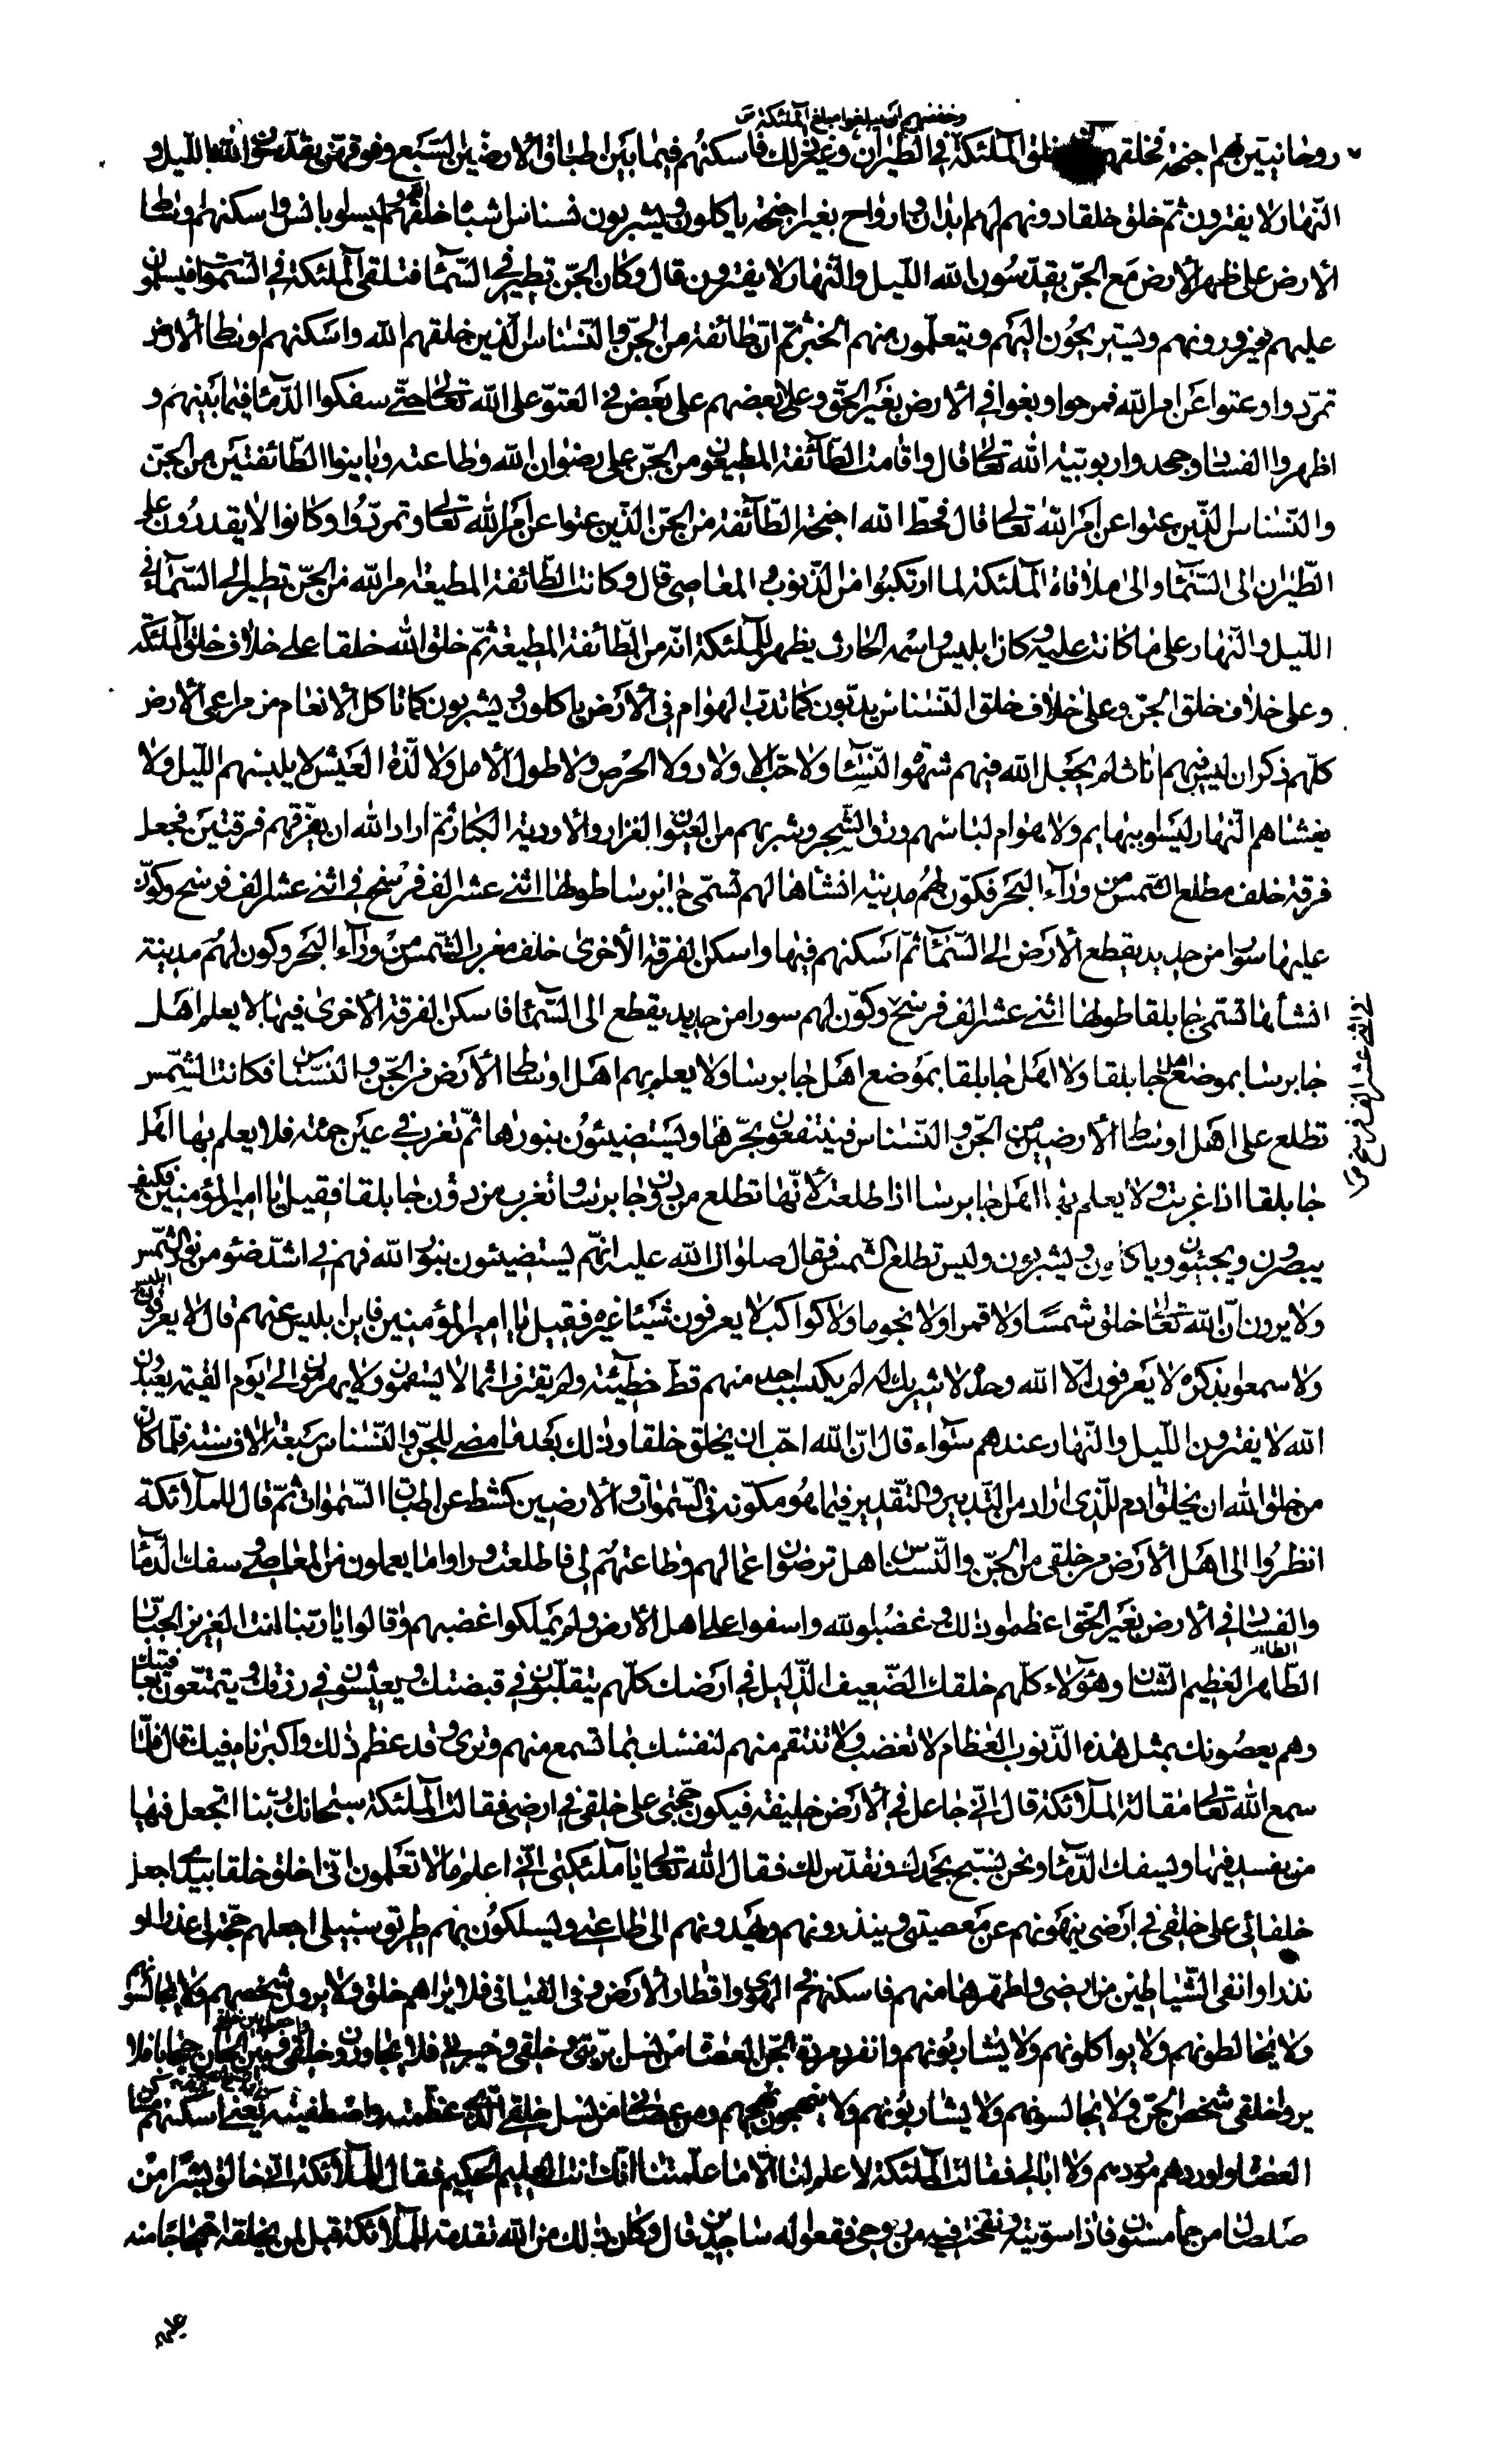 وخفضهم ان يبلغوا مبلغ الملئكة
روحانيين لهم اجنحة فخلقهم دون خلق الملئكة في الطيران وغير ذلك فاسكنهم فيما بين اطباق الارضين السبع وفوقهن يقدسون الله الليل و
النهار لا يفترون ثم خلق خلقا دونهم لهم ابدان وارواح بغير اجنحة ياكلون ويشربون نسناس اشباه خلقهم وليسوا بانس واسكنهم اوساط
الارض على ظهر الارض مع الجن يقدسون الله الليل والنهار لا يفترون قال وكان الجن تطير في السماء فتلقى الملئكة في السموات فيسلمون
عليهم فيزورونهم ويستريحون اليهم ويتعلمون منهم الخبر ثم ان طائفة من الجن والنسناس الذين خلقهم الله واسكنهم اوساط الارض
تمردوا وعتوا عن امر الله فمرحوا وبغوا في الارض بغير الحق وعلا بعضهم على بعض في العتو على الله تعالى حتى سفكوا الدماء فيما بينهم و
اظهروا الفساد وجحدوا ربوبية الله تعالى قال واقامت الطائفة المطيعون من الجن على رضوان الله وطاعته وباينوا الطائفتين من الجن
والنسناس الذين عتوا عن امر الله تعالى قال فحط الله اجنحة الطائفة من الجن الذين عتوا عن امر الله تعالى وتمردوا وكانوا لا يقدرون على
الطيران الى السماء والى ملاقاة الملئكة لما ارتكبوا من الذنوب والمعاصي قال وكانت الطائفة المطيعة لامر الله من الجن تطير الى السماء في
الليل والنهار على ما كانت عليه وكان ابليس واسمه الحارث يظهر للملئكة انه من الطائفة المطيعة ثم خلق الله خلقا على خلاف خلق الملئكة
وعلى خلاف خلق الجن وعلى خلاف خلق النسناس يدبون كما تدب الهوام في الارض ياكلون ويشربون كما تاكل الانعام من مراعي الارض
كلهم ذكران ليس فيهم اناث لم يجعل الله فيهم شهوة النساء ولا حب الاولاد ولا الحرص ولا طول الامل ولا لذة العيش لا يلبسهم الليل ولا
يغشاهم النهار ليسوا ببهايم ولا هوام لباسهم ورق الشجر وشربهم من العيون الغزار والاودية الكبار ثم اراد الله ان يفرقهم فرقتين فجعل
فرقة خلف مطلع الشمس من وراء البحر فكون لهم مدينة انشأها لهم تسمى جابرسا طولها اثني عشر الف فرسخ في اثني عشر الف فرسخ وكون
عليها سورا من حديد يقطع الارض الى السماء ثم اسكنهم فيها واسكن الفرقة الاخرى خلف مغرب الشمس من وراء البحر وكون لهم مدينة
انشأها تسمى جابلقا طولها اثني عشر الف فرسخ وكون لهم سورا من حديد يقطع الى السماء فاسكن الفرقة الاخرى فيها لا يعلم اهل
في اثني عشر الف فرسخ
جابرسا بموضع اهل جابلقا ولا اهل جابلقا بموضع اهل جابرسا ولا يعلم بهم اهل اوساط الارض من الجن والنسناس فكانت الشمس
تطلع على اهل اوساط الارضين من الجن والنسناس فينتفعون بحرها ويستضيئون بنورها ثم تغرب في عين حمئة فلا يعلم بها اهل
جابلقا اذا غربت ولا يعلم بها اهل جابرسا اذا طلعت لانها تطلع من دون جابرسا وتغرب من دون جابلقا فقيل يا امير المؤمنين فكيف
يبصرون ويحيون وياكلون ويشربون وليس تطلع الشمس فقال صلوات الله عليه انهم يستضيئون بنور الله فهم في اشد ضوء من نور الشمس
ولا يرون ان الله تعالى خلق شمسا ولا قمرا ولا نجوما ولا كواكب لا يعرفون شيئا غيره فقيل يا امير المؤمنين فاين ابليس عنهم قال لا يعرفون ابليس
ولا سمعوا بذكره لا يعرفون الا الله وحده لا شريك له لم يكتسب احد منهم قط خطيئة ولم يقترف اثما لا يسقمون ولا يهرمون الى يوم القيمة يعبدون
الله لا يفترون الليل والنهار عندهم سواء قال ان الله احب ان يخلق خلقا وذلك بعد ما مضى للجن والنسناس سبعة الاف سنة فلما كان
من خلق الله ان يخلق ادم للذي اراد من التدبير والتقدير فيما هو مكونه في السموات والارضين كشط عن اطباق السموات ثم قال للملائكة
انظروا الى اهل الارض من خلقي من الجن والنسناس هل ترضون اعمالهم وطاعتهم لي فاطلعت وراوا ما يعملون من المعاصي وسفك الدماء
والفساد في الارض بغير الحق اعظموا ذلك وغضبوا لله واسفوا على اهل الارض ولم يملكوا غضبهم وقالوا يا ربنا انت العزيز الجبار
الطاهر العظيم الشان وهؤلاء كلهم خلقك الضعيف الذليل في ارضك كلهم يتقلبون في قبضتك ويعيشون في رزقك ويتمتعون بعافيتك
وهم يعصونك بمثل هذه الذنوب العظام لا تغضب ولا تنتقم منهم لنفسك بما تسمع منهم وترى وقد عظم ذلك واكبرناه فيك قال فلما
سمع الله تعالى مقالة الملائكة قال اني جاعل في الارض خليفة فيكون حجتي على خلقي في ارضي فقالت الملئكة سبحانك ربنا اتجعل فيها
من يفسد فيها ويسفك الدماء ونحن نسبح بحمدك ونقدس لك فقال الله تعالى يا ملئكتي اني اعلم ما لا تعلمون اني اخلق خلقا بيدي اجعل
خلفائي على خلقي في ارضي ينهونهم عن معصيتي وينذرونهم ويهدونهم الى طاعتي ويسلكون بهم طريق سبيلي اجعلهم حجة لي عذرا او
نذرا وانفي الشياطين من ارضي واطهرها منهم فاسكنهم في الهواء واقطار الارض وفي الفيافي فلا يراهم خلق ولا يرون شخصهم ولا يجالسونهم
ولا يخالطونهم ولا يواكلونهم ولا يشاربونهم وانفر مردة الجن العصاة من نسل بريتي وخلقي وخيرتي فلا يجاورون خلقي وبين الجان حجابا فلا
يرى خلقي شخص الجن ولا يجالسونهم ولا يشاربونهم ولا ومن عصاني من نسل خلقي الذي عظمته واصطفيته اسكنهم مساكن
العصاة واوردهم موردهم ولا ابالي فقالت الملئكة لا علم لنا الا ما علمتنا انك انت العليم الحكيم فقال للملائكة اني خالق بشرا من
صلصال من حمأ مسنون فاذا سويته ونفخت فيه من روحي فقعوا له ساجدين قال وكان ذلك من الله تقدمة للملائكة قبل ان يخلقه احتجاجا منه
عليهم